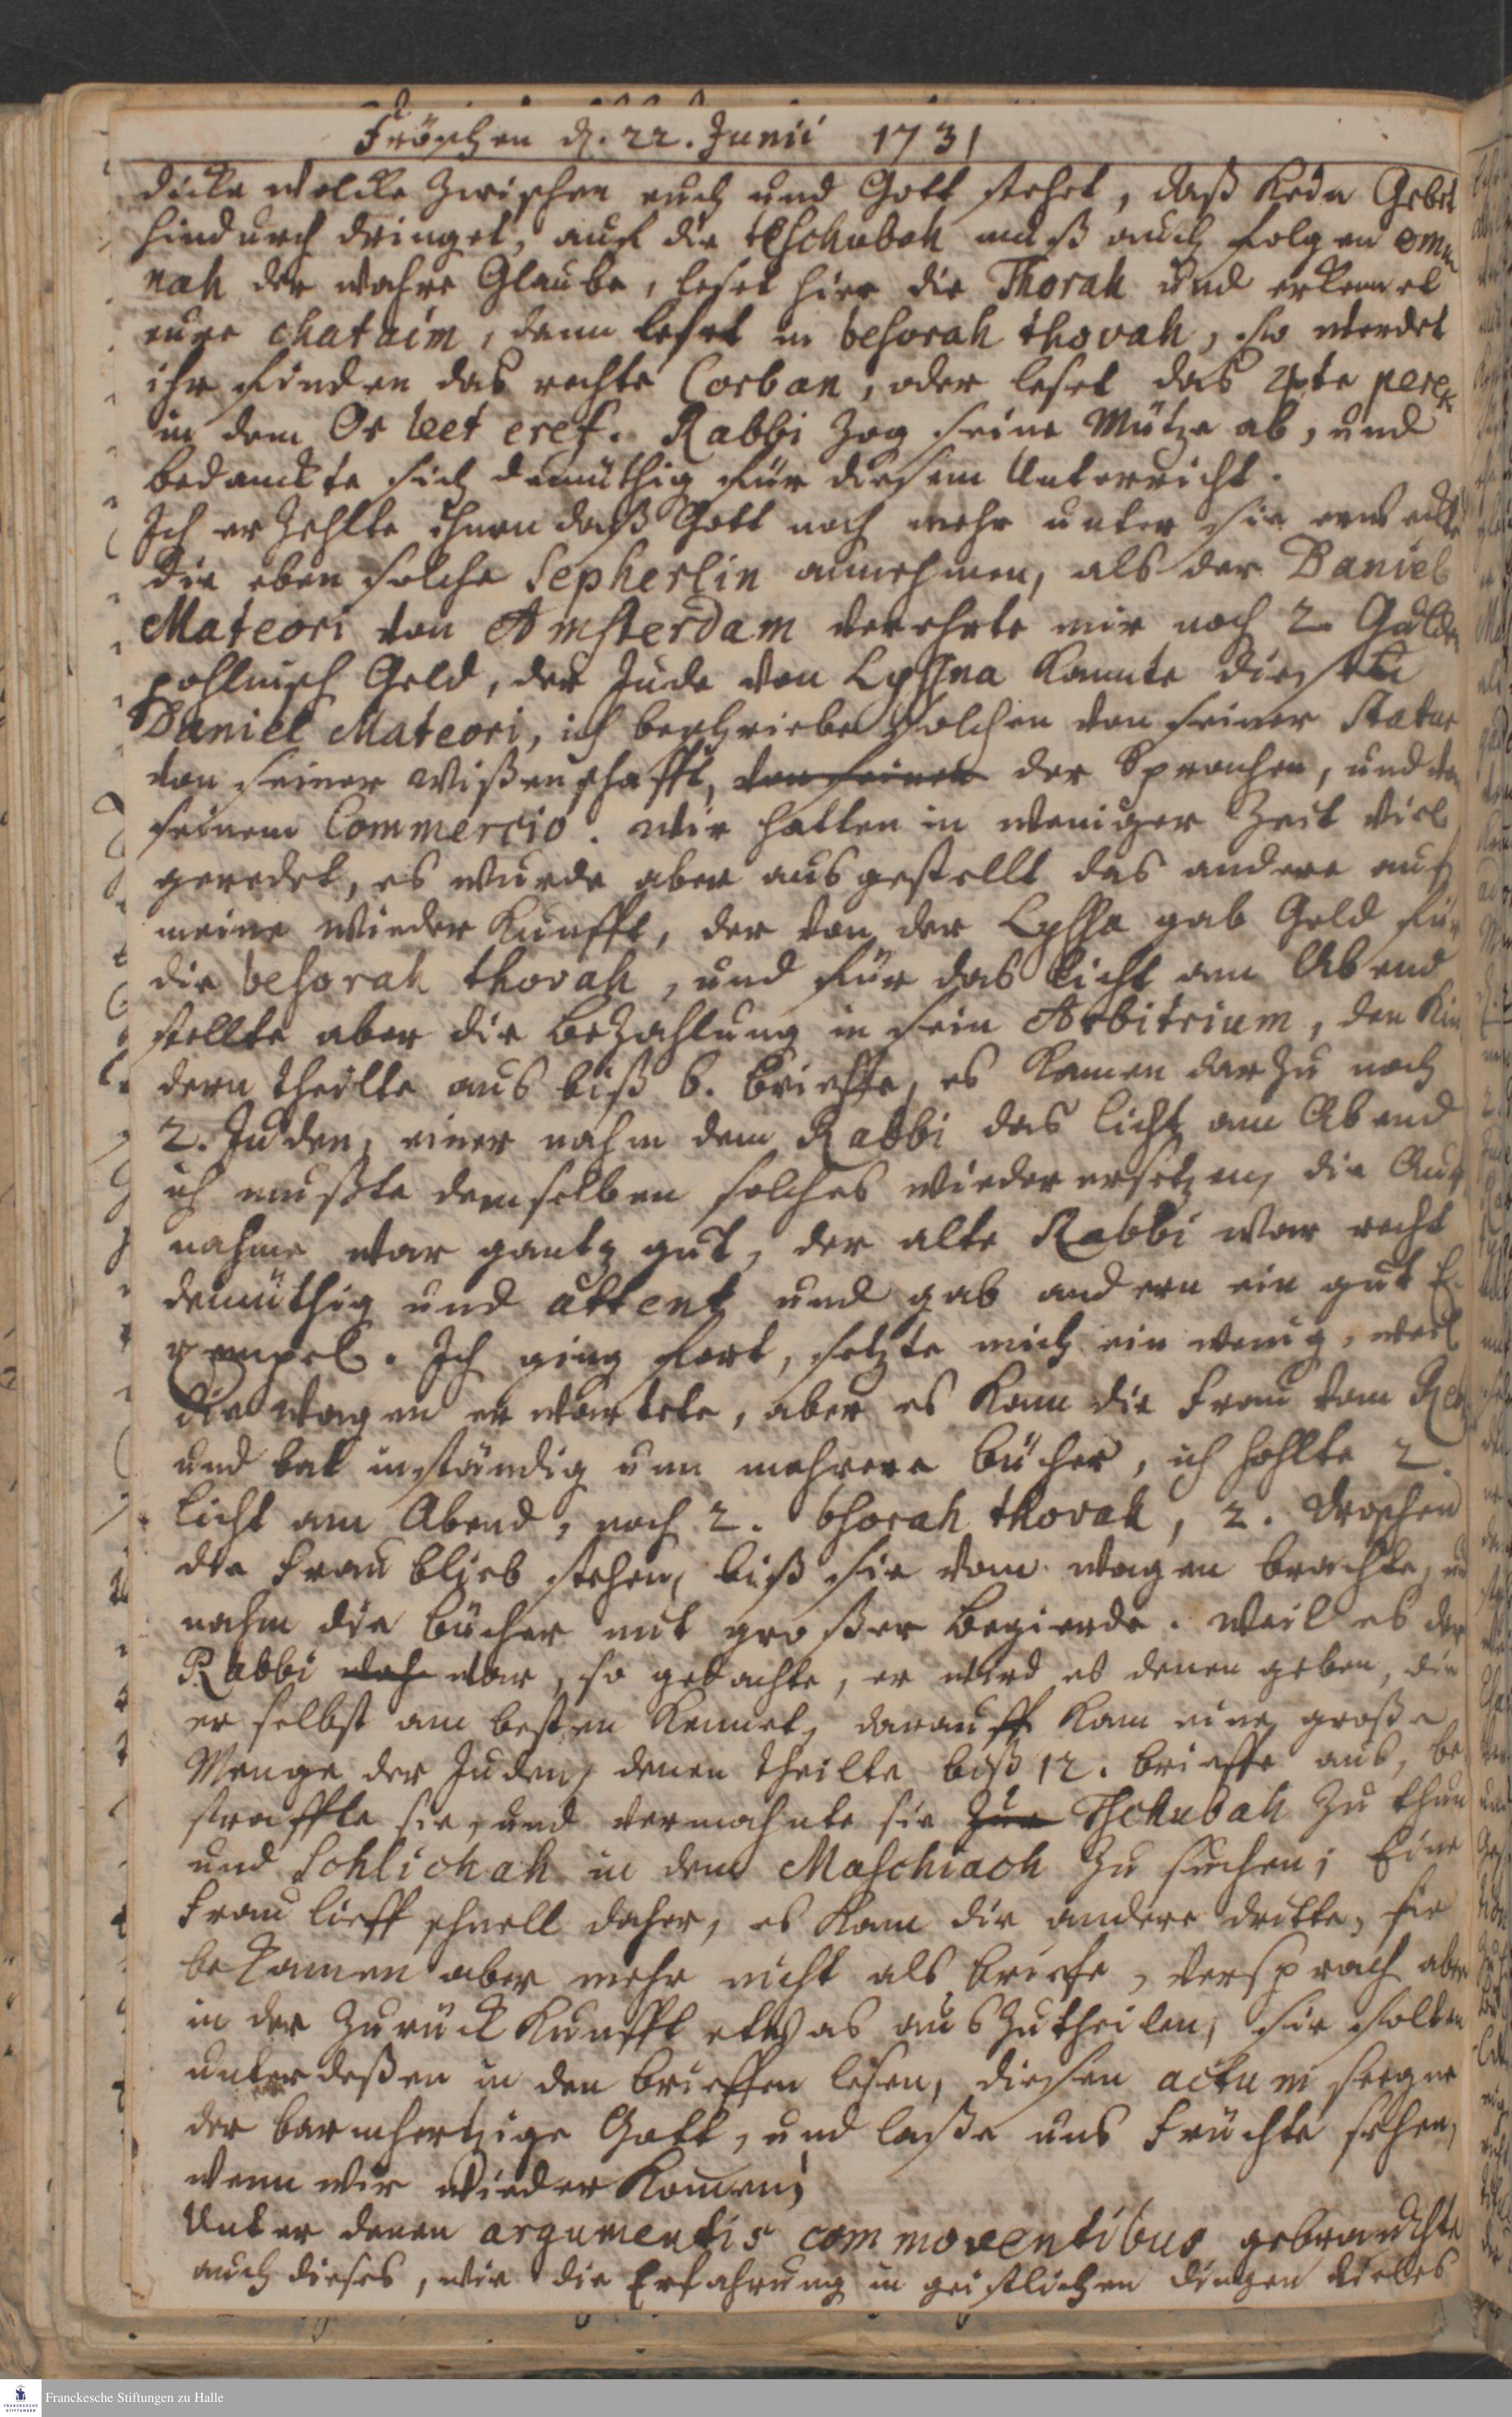 Fröschen d. 22. Junii 1731
dicke Wolcke zwischen euch und Gott stehet, daß kein Gebet
hindurch dringet, auf die teschubah muß auch folgen emu
nah der wahre Glaube, leset hier die Thorah und erkennet
eure chataim, denn leset in besorah thovah, so werdet
ihr finden das rechte Corban, oder leset das 4te perek
in dem Or leet eref. Rabbi zog seine Mütze ab, und
bedanckte sich demüthig für diesem Unterricht.
Ich erzehlte ihnen daß Gott noch mehr unter sie erweckte
die eben solche Sepherlin annehmen, als der Daniel
Mateori von Amsterdam verehrte mir noch 2. Gulden
pohlnisch Geld, der Jude von Lyssna kannte diesen
Daniel Mateori, ich beschriebe solchen von seiner Statur
von seiner Wißenschafft, von seiner der Sprachen, und von
seinem Commercio. Wir hatten in weniger Zeit viel
geredet, es wurde aber ausgestellt das andere auf
meine Wiederkunfft, der von der Lyssa gab Geld für
die besorah thovah, und für das Licht am Abend
stellte aber die Bezahlung in sein Arbitrium, den Kin
dern theilte aus biß 6. Brieffe, es kamen darzu noch
2. Juden, einer nahm dem Rabbi das Licht am Abend
ich mußte demselben solches wieder ersetzen, die Auf
nahme war gantz gut, der alte Rabbi war recht
demüthig und attent, und gab andern ein gut E-
xempel. Ich ging fort, setzte mich ein wenig, weil
die Wagen erwartete, aber es kam die Frau vom
und bat inständig um mehrere Bücher, ich hohlte 2.
Licht am Abend, noch 2. bsorah thovah, 2.
die Frau blieb stehen, biß sie vom Wagen brachte, u
nahm die Bücher mit großer Begierde. Weil es der
Rabbi war, so gedachte, er wird es denen geben, die
er selbst am besten kennet, darauff kam eine große
Menge der Juden, denen theilte biß 12. Brieffe aus, be
straffte sie, und vermahnte sie zur Tschubah zu thun
und Sohlichah in dem Maschiach zu suchen; Eine
Frau lieff schnell daher, es kam die andere dritte, sie
bekamen aber mehr nicht als Briefe, versprach aber
in der Zurückkunfft etwas auszutheilen, sie solten
unterdeßen in den Brieffen lesen, diesen actum seegne
der barmhertzige Gott, und laße uns Früchte sehen,
wenn wir wieder komen;
Unter denen argumentis commoventibus gebrauchte
auch dieses, wie die Erfahrung in geistlichen Dingen vieles
Franckesche Stiftungen zu Halle